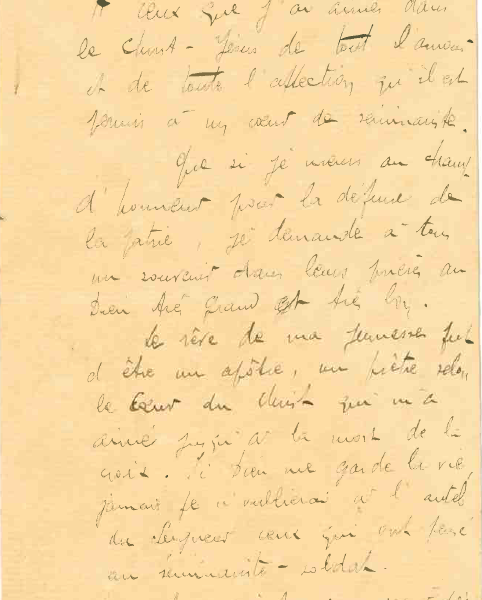 A ceux que j'ai aimés dans
le Christ-Jésus de tout l'amour
et de toute l'affection qu'il est
permis à un cœur de séminariste.
Que si je meurs au champ
d'honneur pour la défense de
la patrie, je demande à tous
un souvenir dans leurs prières au
Dieu très grand est très bon.
Le rêve de ma jeunesse fut
d'être un apôtre, un prêtre selon
le Cœur du Christ qui m'a
aimé jusqu'à la mort de la
croix. Si Dieu me garde la vie,
jamais je n'oublierai à l'autel
du Seigneur ceux qui ont pensé
au séminariste-soldat.